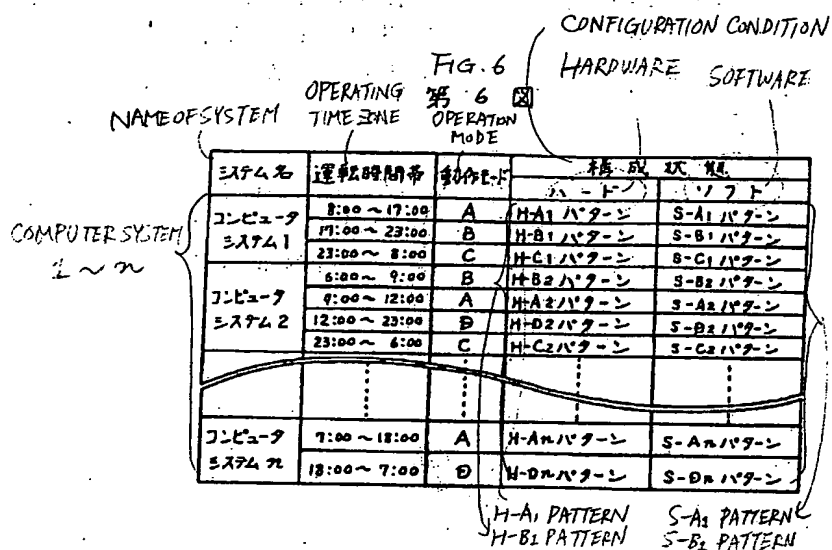 CONFIGURATION CONDITION
FIG. 6
HARDWARE
SOFTWARE
第 6 図
NAME OF SYSTEM
OPERATING TIME ZONE
OPERATION MODE
システム名 運転時間帯 動作モード 構成状態
ハード ソフト
COMPUTER SYSTEM 1～n
コンピュータシステム1
8:00～17:00 A H-A1パターン S-A1パターン
17:00～23:00 B H-B1パターン S-B1パターン
23:00～8:00 C H-C1パターン S-C1パターン
コンピュータシステム2
6:00～9:00 B H-B2パターン S-B2パターン
9:00～12:00 A H-A2パターン S-A2パターン
12:00～23:00 D H-D2パターン
23:00～6:00 C H-C2パターン S-C2パターン
コンピュータシステムn
7:00～18:00 A H-Anパターン S-Anパターン
18:00～7:00 D H-Dnパターン S-Dnパターン
H-A1 PATTERN S-A1 PATTERN
H-B1 PATTERN S-B1 PATTERN